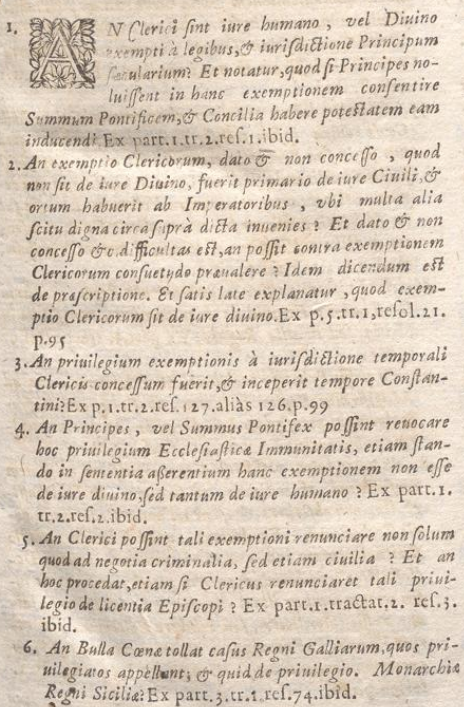 1. AN Clerici sint iure humano, vel Diuino
exempti à legibus, & iurisdictione Principum
sæcularium? Et notatur, quod si Principes no-
luissent in hanc exemptionem consentire
Summum Pontificem, & Concilia habere potestatem eam
inducendi. Ex part.1.tr.2.res.1.ibid.
2. An exemptio Clericorum, dato & non concesso, quod
non sit de iure Diuino, fuerit primario de iure Ciuili, &
ortum habuerit ab Imperatoribus, vbi multa alia
scitu digna circa suprà dicta inuenies? Et dato & non
concesso &c. difficultas est, an possit contra exemptionem
Clericorum consuetudo præualere? Idem dicendum est
de præscriptione. Et satis late explanatur, quod exem-
ptio Clericorum sit de iure diuino. Ex p.5.tr.1, resol.21.
p.95
3. An priuilegium exemptionis à iurisdictione temporali
Clericis concessum fuerit, & inceperit tempore Constan-
tini? Ex p.1.tr.2.res.127.aliàs 126.p.99
4. An Principes, vel Summus Pontifex possint reuocare
hoc priuilegium Ecclesiasticæ Immunitatis, etiam stan-
do in sententia asserentium hanc exemptionem non esse
de iure diuino, sed tantum de iure humano? Ex part.1.
tr.2.res.2.ibid.
5. An Clerici possint tali exemptioni renunciare non solum
quod ad negotia criminalia, sed etiam ciuilia? Et an
hoc procedat, etiam si Clericus renunciaret tali priui-
legio de licentia Episcopi? Ex part.1.tractat.2. res.3.
ibid.
6. An Bulla Cœnæ tollat casus Regni Galliarum, quos pri-
uilegiatos appellant; & quid de priuilegio. Monarchiæ
Regni Siciliæ? Ex part.3.tr.1.res.74.ibid.